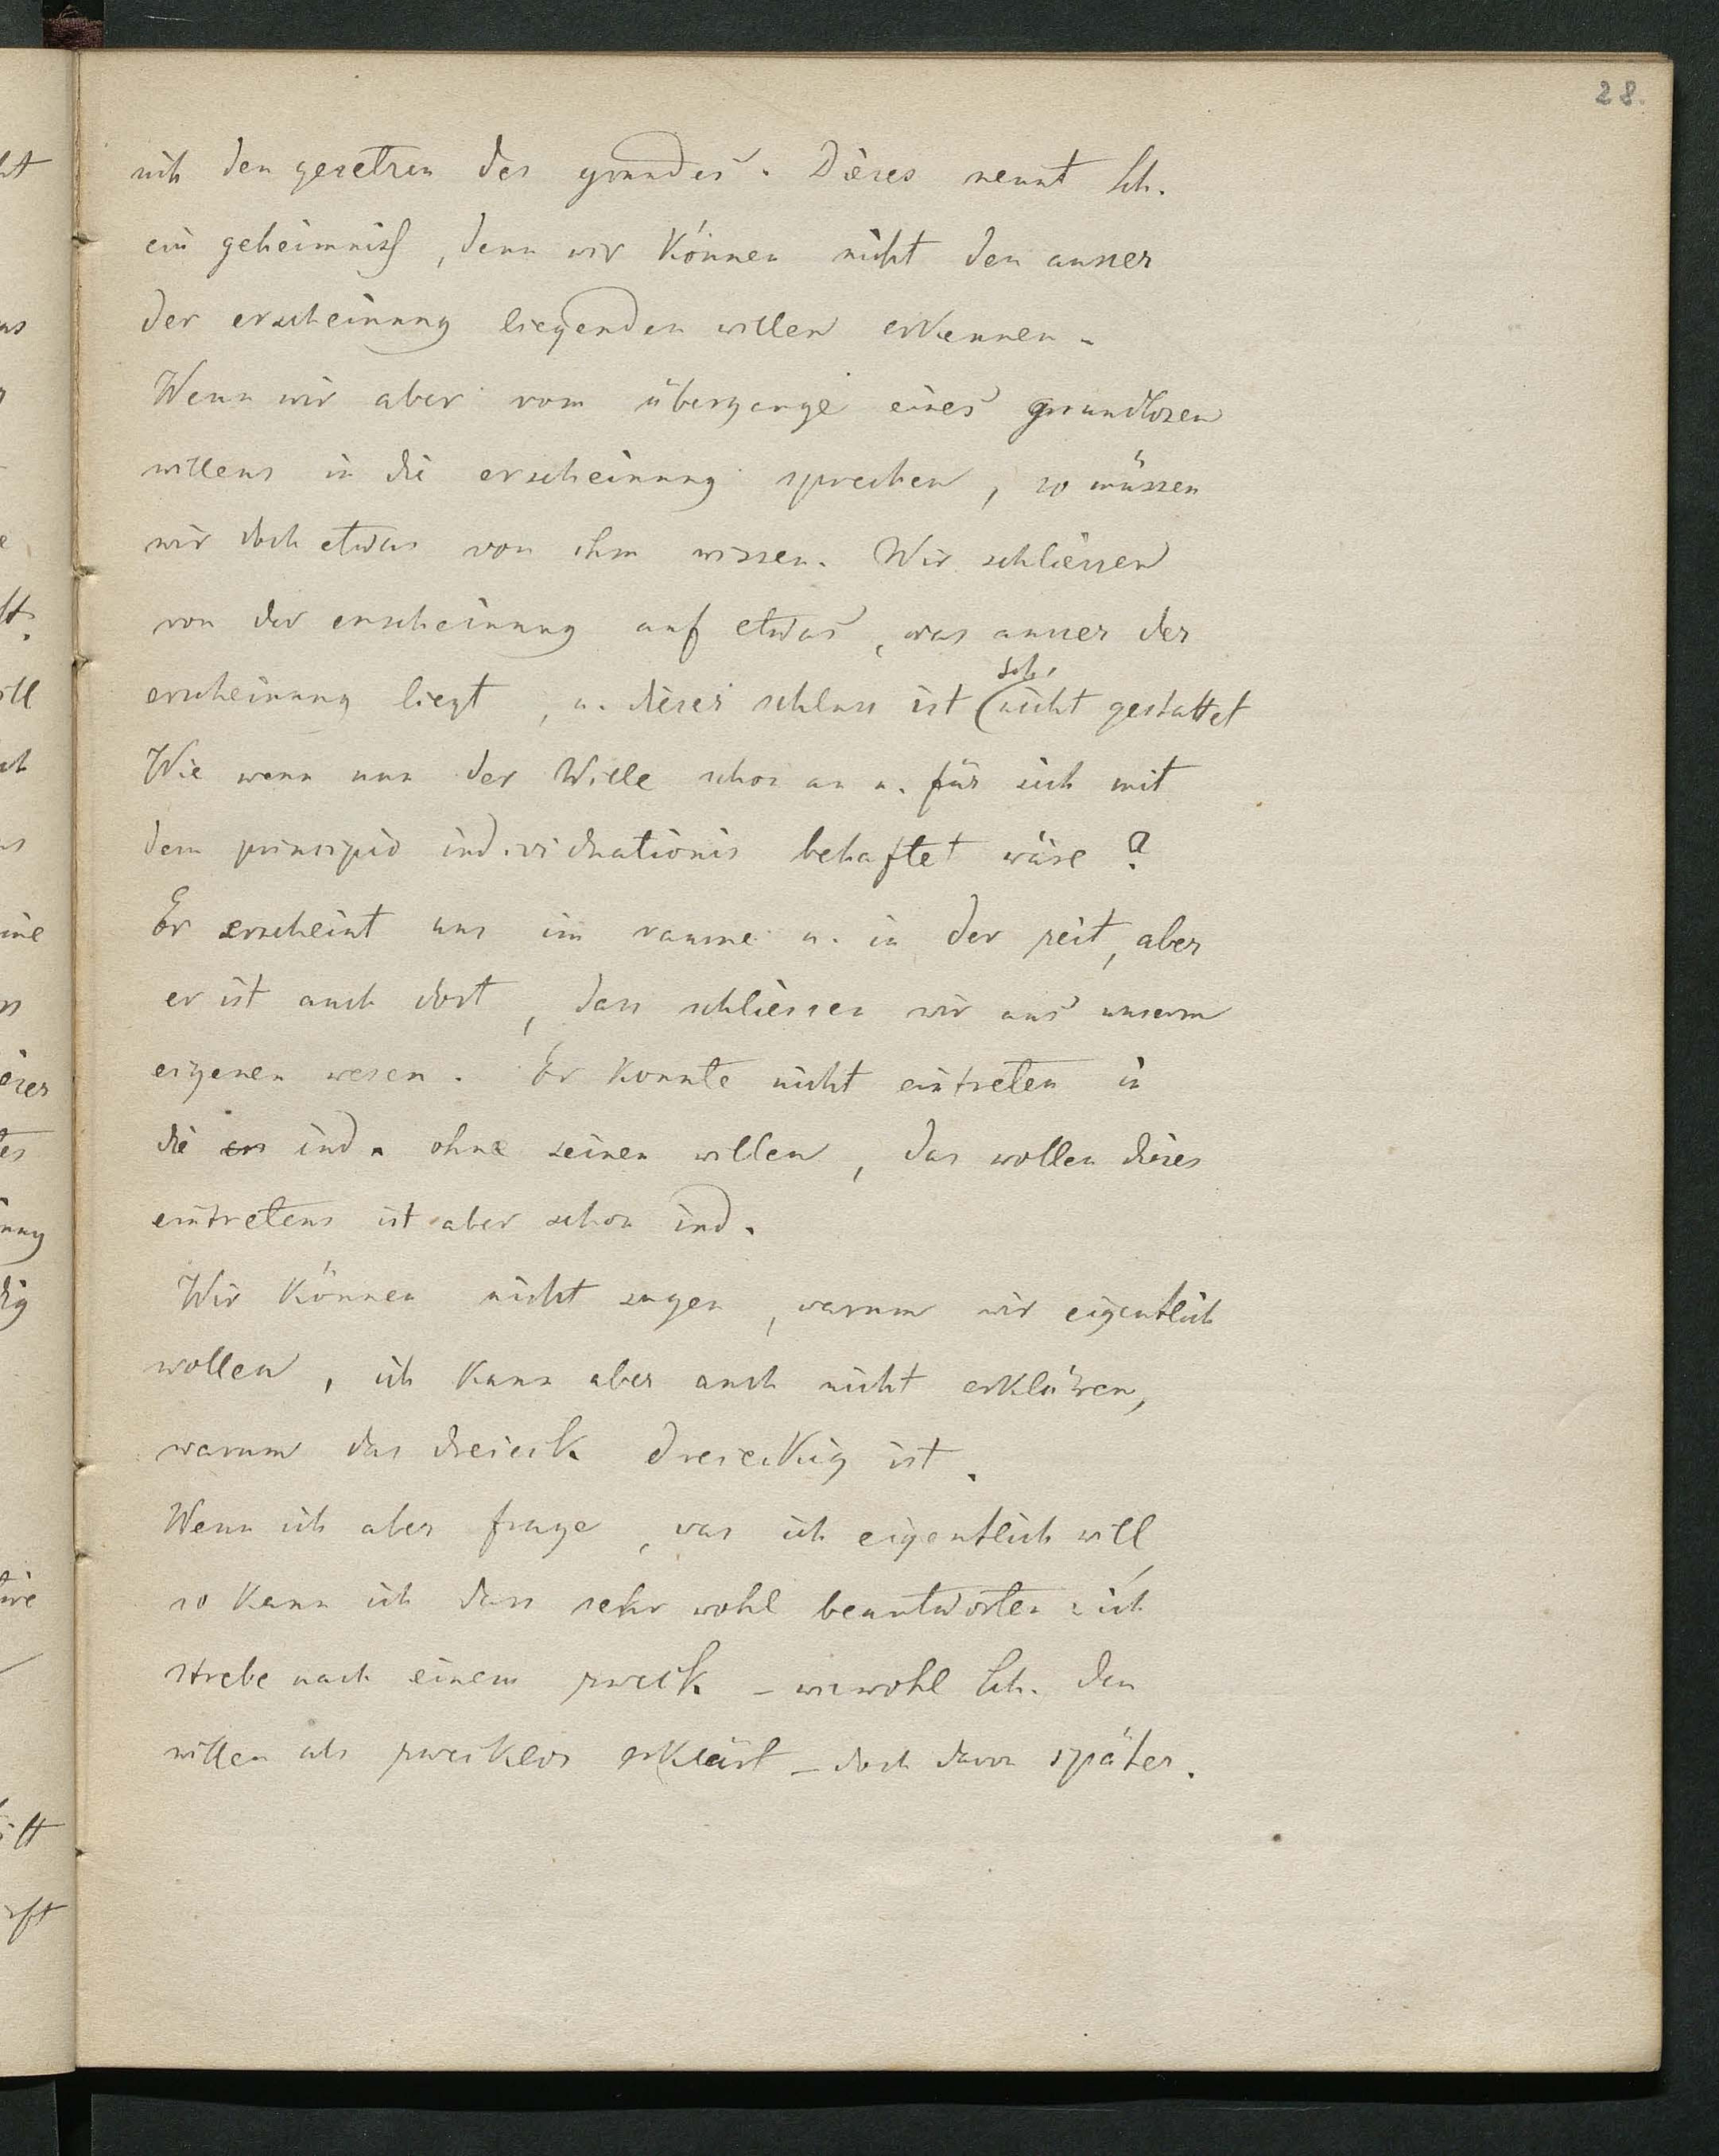 28.
sich den gesetzen des grundes. Dieses nennt Sch.
ein geheimniss, denn wir können nicht den ausser
der erscheinung liegenden willen erkennen.
Wenn wir aber vom übergange eines grundlosen
willens in die erscheinung sprechen, so müssen
wir doch etwas von ihm wissen. Wir schliessen
von der erscheinung auf etwas, was ausser der
sch.
erscheinung liegt, u. dieser schluss ist (nicht gestattet
Wie wenn nun der Wille schon an u. für sich mit
dem principio individuationis behaftet wäre?
Er erscheint uns im raume u. in der zeit, aber
er ist auch dort, dass schliessen wir aus unserm
eigenen wesen. Er konnte nicht eintreten in
die ers ind. ohne seinen willen, das wollen dieses
eintretens ist aber schon ind.
Wir können nicht sagen, warum wir eigentlich
wollen, ich kann aber auch nicht erklären,
warum das dreieck dreieckig ist.
Wenn ich aber frage, was ich eigentlich will,
so kann ich dass sehr wohl beantworten: ich
strebe nach einem zweck – wiewohl Sch. den
willen als zwecklos erklärt – doch davon später.